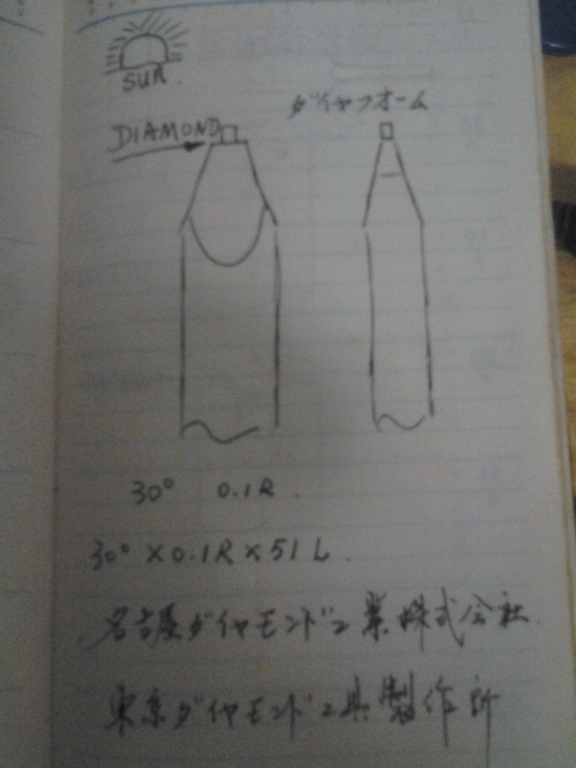 SUN.
ダイヤフオーム
DIAMOND
30° 0.1R.
30° ×0.1R×51L.
名古屋ダイヤモンド工業株式会社.
東京ダイヤモンド工具製作所